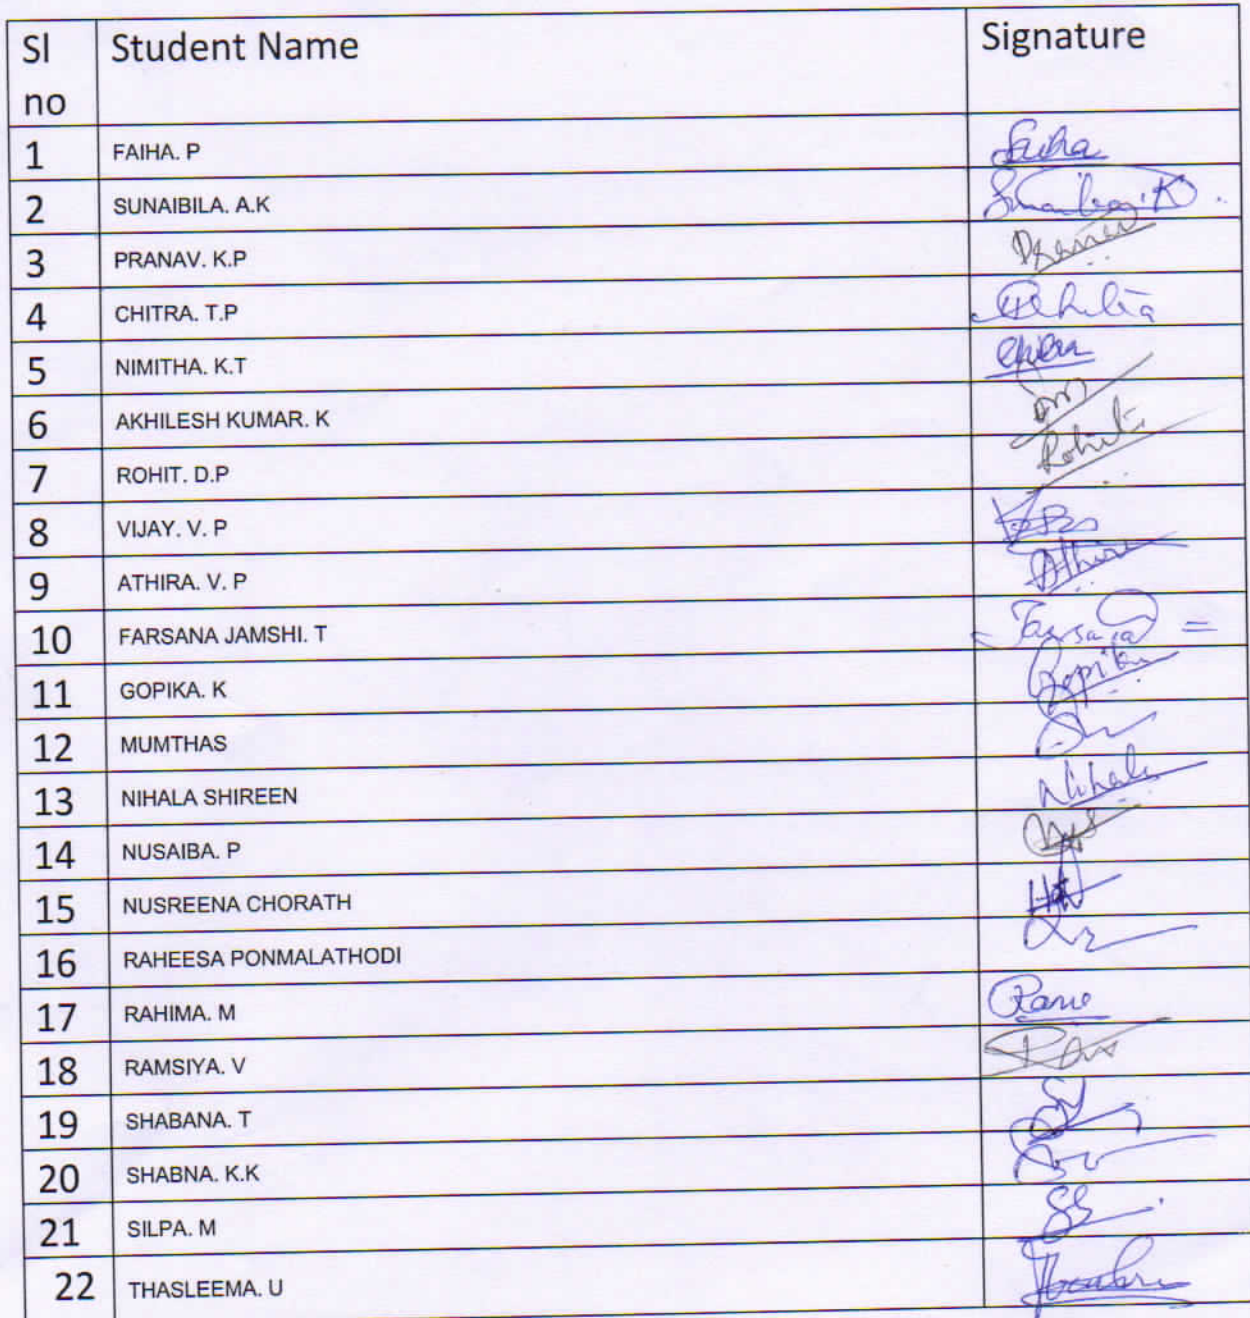 Sl no Student Name Signature
1 FAIHA. P Faiha
2 SUNAIBILA. A.K
3 PRANAV. K.P Pranav
4 CHITRA. T.P
5 NIMITHA. K.T
6 AKHILESH KUMAR. K
7 ROHIT. D.P Rohit
8 VIJAY. V. P
9 ATHIRA. V. P Athira
10 FARSANA JAMSHI. T Farsana
11 GOPIKA. K Gopika
12 MUMTHAS
13 NIHALA SHIREEN Nihala
14 NUSAIBA. P
15 NUSREENA CHORATH
16 RAHEESA PONMALATHODI
17 RAHIMA. M
18 RAMSIYA. V
19 SHABANA. T
20 SHABNA. K.K
21 SILPA. M
22 THASLEEMA. U